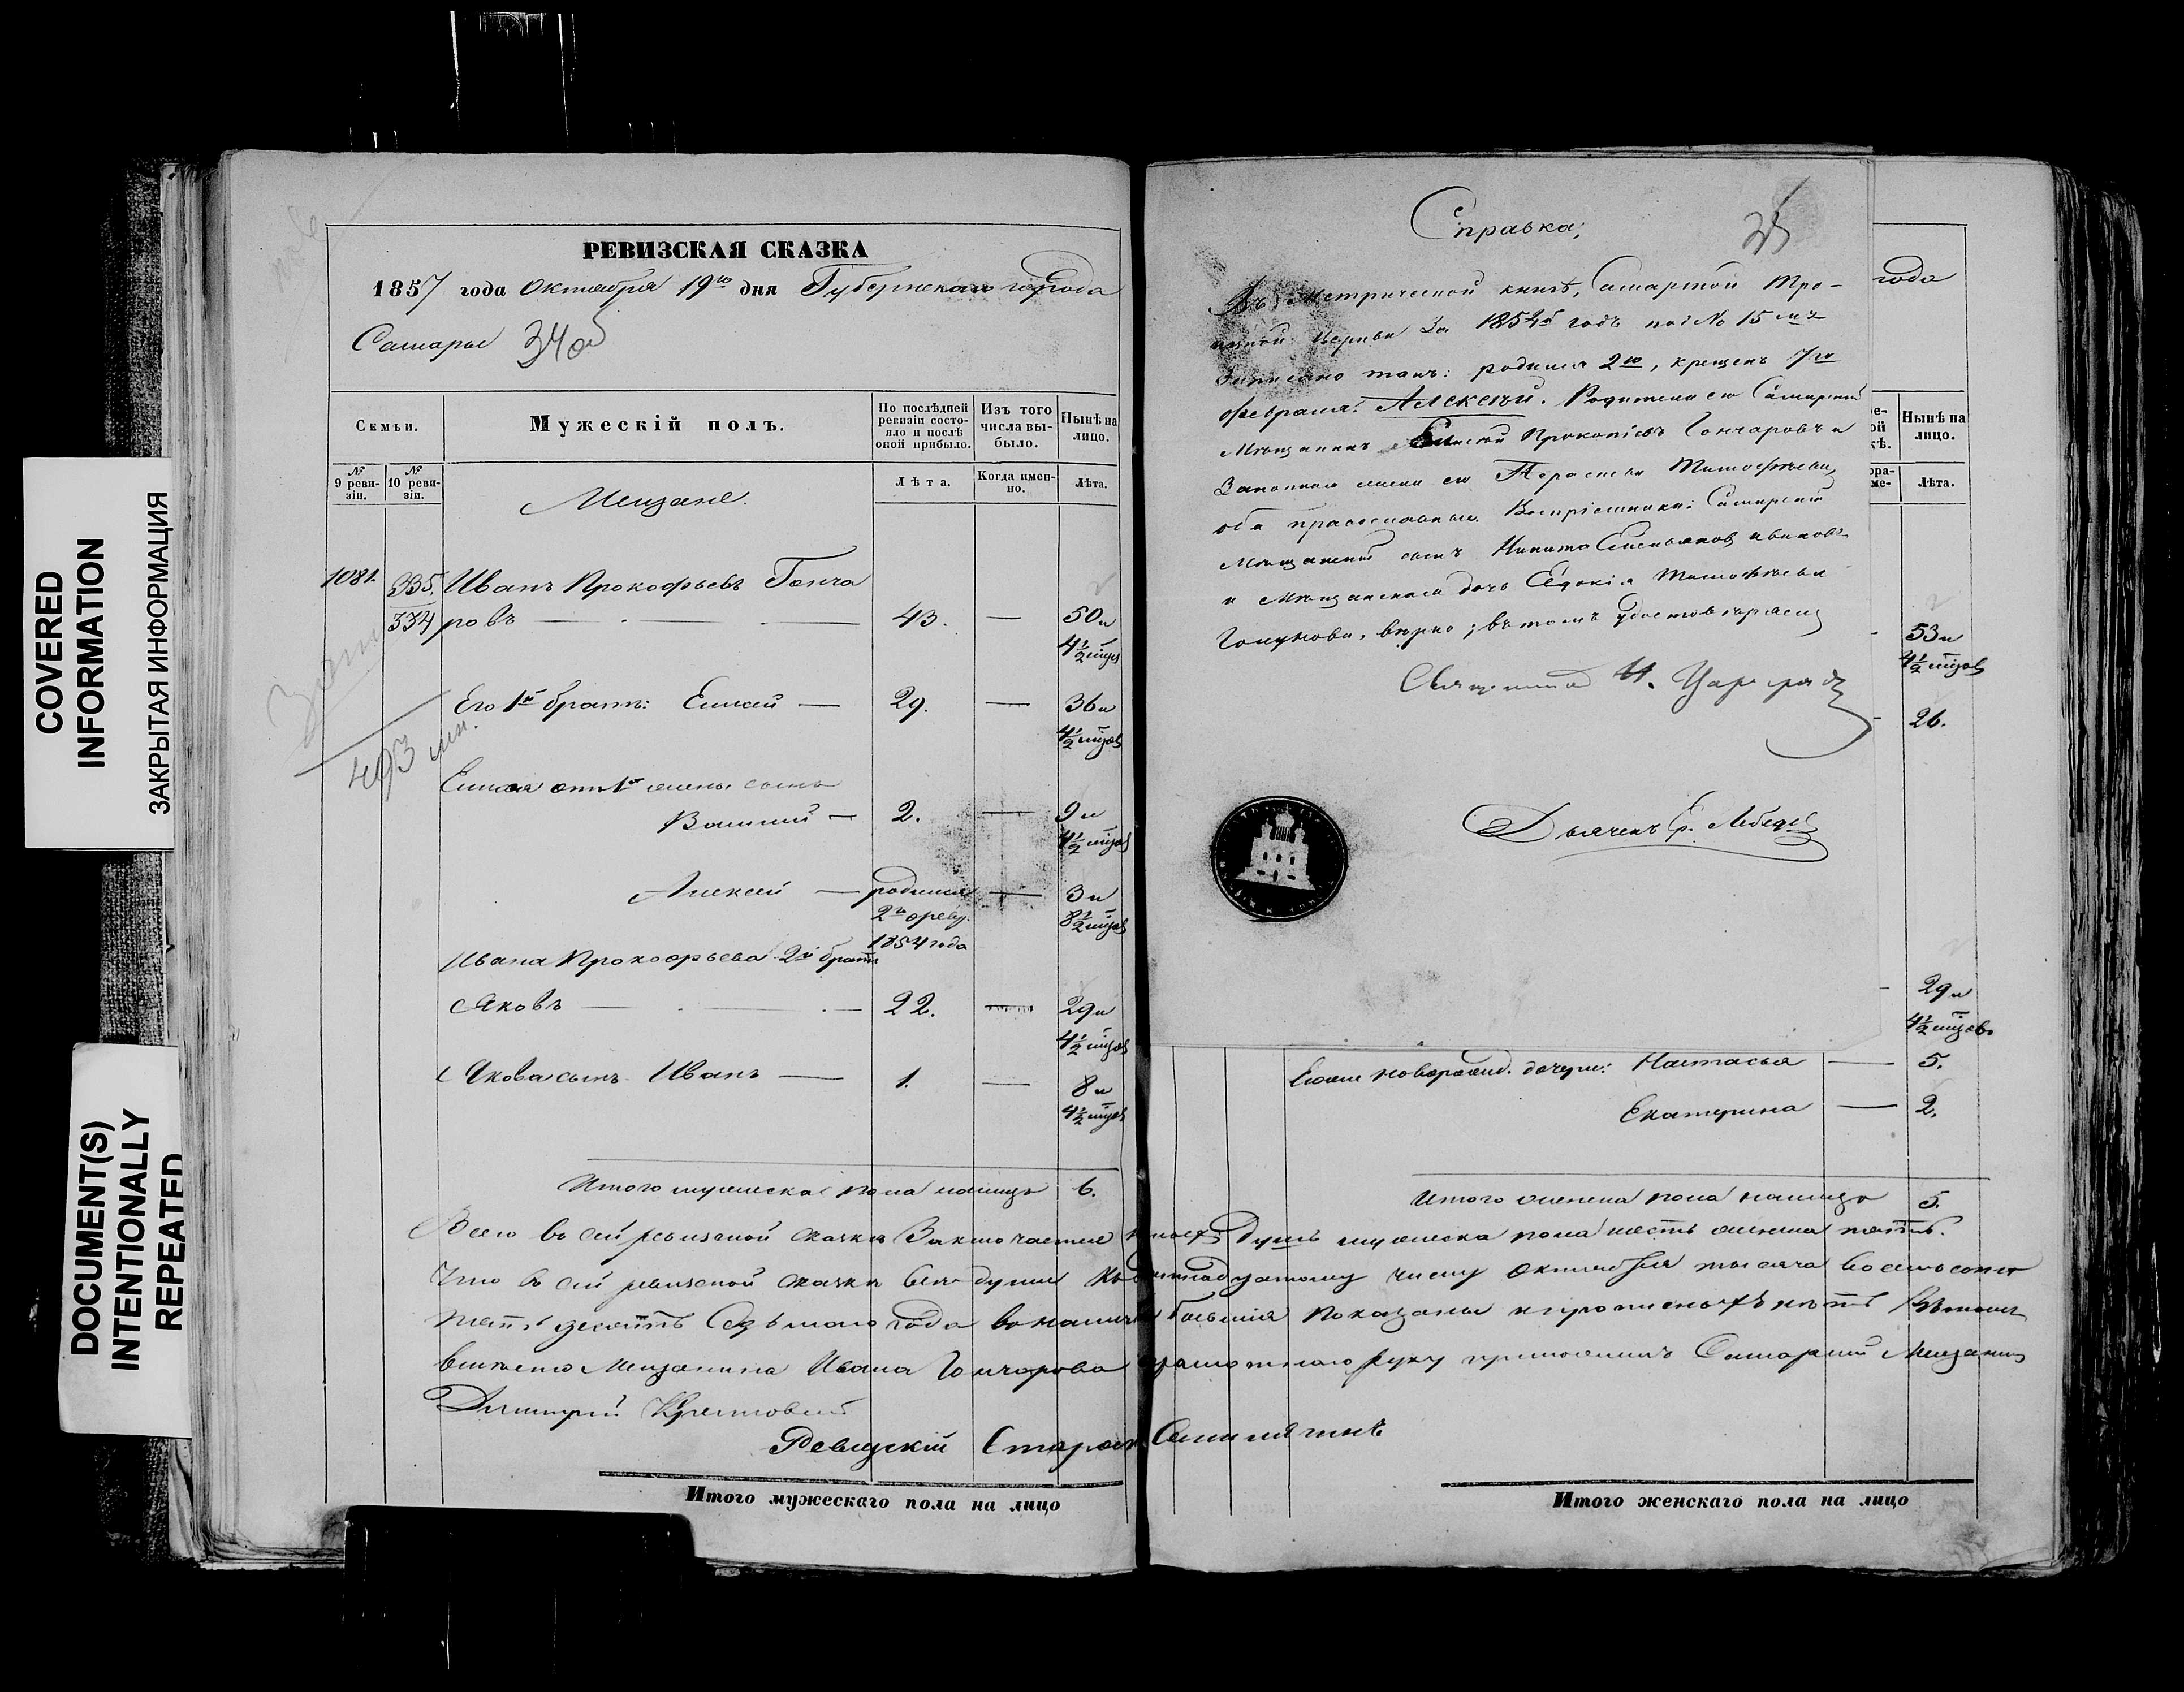 COVERED
INFORMATION
ЗАКРЫТАЯ ИНФОРМАЦИЯ
DOCUMENT(S)
INTENTIONALLY
REPEATED
РЕВИЗСКАЯ СКАЗКА
1857 года Октября 19го дня Губернскаго города
Самары 34об
Семьи.
Мужескій полъ.
По послѣдней ревизіи состояло и послѣ оной прибыло.
Изъ того числа выбыло.
Нынѣ на лицо.
№ 9 ревизіи.
№ 10 ревизіи.
Лѣта.
Когда именно.
Лѣта.
Мещане.
1081. 335. Иванъ Прокофьевъ Гонча
334 ровъ — 43. — 50 и
4½ мцов
Его 1й братъ: Елисей — 29. — 36 и
4½ мцов
493
Елисея отъ 1й жены сынъ
Василий — 2. — 9 и
4½ мцов
Алексей — родился — 3 и
2го февр. 8½ мцов
1854 года
Ивана Прокофьева 2й братъ
Яковъ — 22. — 29 и
4½ мцов
Якова сынъ Иванъ — 1. — 8 и
4½ мцов
Итого мужеска пола налицо 6.
Справка;
25
Въ Метрической книгѣ, Самарской Тро-
ицкой Церкви за 1854й годъ под № 15мъ
Записано такъ: родился 2го, крещенъ 7го
февраля: Алексѣй. Родители его Самарский
Мѣщанинъ Елисей Прокопіевъ Гончаровъ и
Законная жена его Параскева Тимофѣева,
оба православные. Воспріемники: Самарский
Мещанский сынъ Никита
и Мѣщанская дочь Евдокія Тимофѣева
вѣрно; въ томъ удостовѣряемъ
Священникъ И.
Дьячекъ
года
Нынѣ на лицо.
Лѣта.
53 и
4½ мцов
26.
29 и
4½ мцов.
новорожд. дочери: Настасья — 5.
Екатерина — 2.
Итого женска пола налицо 5.
Всего въ сей ревизской сказке Заключается налицо душъ мужеска пола шесть женска пять.
Что въ сей ревизской сказке все души къ девятнадцатому числу Октября тысяча восемьсотъ
пятьдесятъ Седьмаго года въ наличіи бывшія показаны и прописныхъ нетъ Въ томъ
вместо Мещанина Ивана Гончарова неграмотнаго руку приложилъ Самарский Мещанинъ
Димитрий
Ревизскій Староста
Итого мужескаго пола на лицо
Итого женскаго пола на лицо